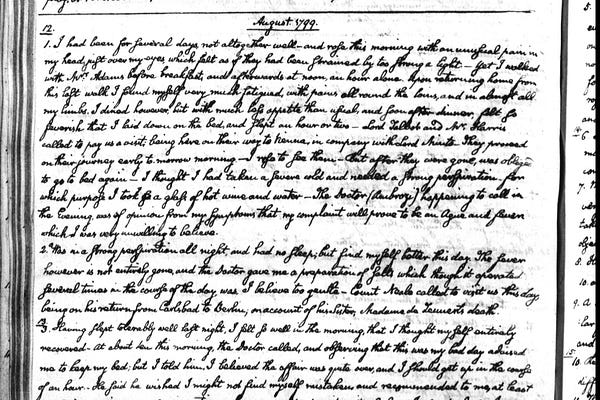 August 1799.
12.
1. I had been for several days, not altogether well—and rose this morning with an unusual pain in
my head, just over my eyes, which felt as if they had been strained by too strong a light—Yet I walked
with Mrs. Adams before breakfast, and afterwards at noon, an hour alone. Upon returning home from
this last walk I found myself very much fatigued, with pains all round the loins, and in almost all
my limbs. I dined, however, but with much less appetite than usual, and soon after dinner, felt so
feverish that I laid down on the bed, and slept an hour or two—Lord Talbot and Mr. Harris
called to pay us a visit, being here on their way to Vienna, in company with Lord Minto. They proceed
on their journey early to-morrow morning—I rose to see them—But after they were gone, was obliged
to go to bed again—I thought I had taken a severe cold and needed a strong perspiration, for
which purpose I took a glass of hot wine and water—The Doctor (Ambrozi) happening to call in
the Evening, was of opinion from my symptoms that my complaint will prove to be an Ague and fever
which I was very unwilling to believe.
2. Was in a strong perspiration all night, and had no sleep; but find myself better this day. The fever
however is not entirely gone, and the Doctor gave me a preparation of salts which though it operated
several times in the course of the day, was I believe too gentle—Count Neale called to visit us this day
being on his return from Carlsbad to Berlin, on account of his sister, Madame de death
3. Having slept tolerably well last night, I felt so well in the morning, that I thought myself entirely
recovered—At about ten this morning, the Doctor called, and observing that this was my bad day advised
me to keep my bed; but I told him, I believed the affair was quite over, and I should get up in the course
of an hour—He said he wished I might not find myself mistaken, and recommended to me at least